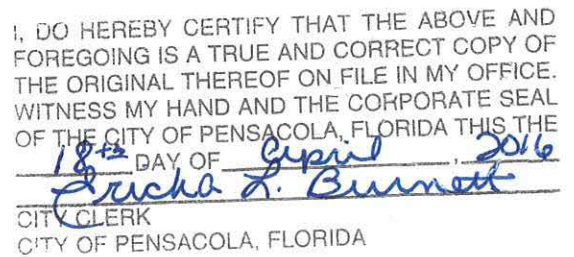 I, DO HEREBY CERTIFY THAT THE ABOVE AND
FOREGOING IS A TRUE AND CORRECT COPY OF
THE ORIGINAL THEREOF ON FILE IN MY OFFICE.
WITNESS MY HAND AND THE CORPORATE SEAL
OF THE CITY OF PENSACOLA, FLORIDA THIS THE
18th DAY OF April, 2016
Ericka L. Burnett
CITY CLERK
CITY OF PENSACOLA, FLORIDA